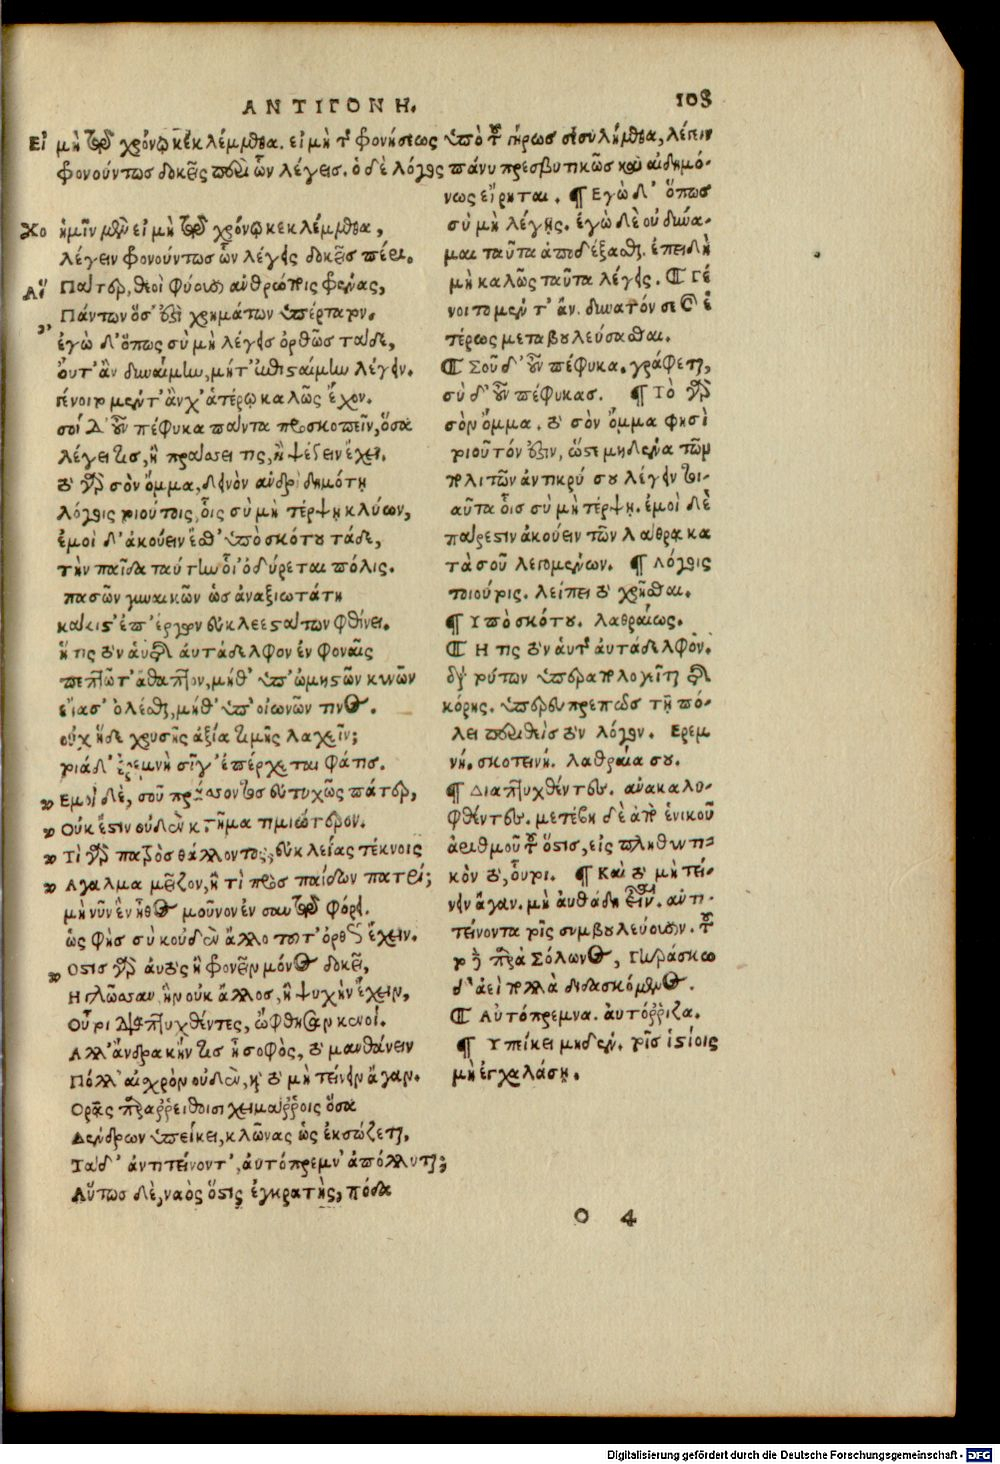 ΑΝΤΙΓΟΝΗ. 108
Εἰ μὴ τῷ χρόνῳ κεκλέμμεθα. εἰ μὴ τ φρονήσεως ὑπὸ τοῦ γήρως σεσυλήμεθα, λέγειν
φρονούντως δοκεῖς περὶ ὧν λέγεις. ὁ δὲ λόγος πάνυ πρεσβυτικῶς καὶ αἰδημό-
νως εἴρηται. ¶ Εγὼ δ' ὅπως
σὺ μὴ λέγῃς. ἐγὼ δὲ οὐ δύνα-
μαι ταῦτα ἀποδέξασθαι. ἐπειδὴ
μὴ καλῶς ταῦτα λέγεις. ¶ Γέ
νοιτο μεν τ' ἄν. δυνατόν σε καὶ ἑ
τέρως μεταβουλεύσασθαι.
¶ Σοῦ δ' οὖν πέφυκα. γράφεται,
σὺ δ' οὖν πέφυκας. ¶ Τὸ γὰρ
σὸν ὄμμα. τὸ σὸν ὄμμα φησὶ
τοιοῦτόν ἐστιν, ὥστε μηδένα τῶν
πολιτῶν ἀντικρύ σου λέγειν τοι-
αῦτα οἷς σὺ μὴ τέρψῃ. ἐμοὶ δὲ
πάρεστιν ἀκούειν τῶν λάθρα κα
τὰ σοῦ λεγομένων. ¶ Λόγοις
τοιούτοις. λείπει τὸ χρῆσθαι.
¶ Υπὸ σκότου. λαθραίως.
¶ Η τις τὸν αὑτ αὐτάδελφον.
διὰ τούτων ὑπεραπολογεῖται τῆς
κόρης. ὑπὲρ εὐπρεποῦς τῇ πό-
λει περιθεὶς τὸν λόγον. Ερεμ
νή. σκοτεινή. λαθραία σου.
¶ Διαπτυχθέντες. ἀνακαλυ-
φθέντες. μετέβη δὲ ἀπὸ ἑνικοῦ
ἀριθμοῦ τοῦ ὅστις, εἰς πληθυντι-
κὸν τὸ, οὗτοι. ¶ Καὶ τὸ μὴ τεί-
νειν ἄγαν. μὴ αὐθάδη εἶναι. ἀντι-
τείνοντα τοῖς συμβουλεύουσιν. τοῦ
το παρὰ Σόλωνος, Γηράσκω
δ' ἀεὶ πολλὰ διδασκόμενος.
¶ Αὐτόπρεμνα. αὐτόρριζα.
¶ Υπείκει μηδεν. τοῖς ἱστίοις
μὴ ἐγχαλάσῃ.
Χο ἡμῖν μὲν εἰ μὴ τῷ χρόνῳ κεκλέμμεθα,
λέγειν φρονούντως ὧν λέγεις δοκεῖς πέρι.
Αἵ Πάτερ, θεοὶ φύουσιν ἀνθρώποις φρένας,
Πάντων ὅσ' ἐστὶ χρημάτων ὑπέρτατον.
ἐγὼ δ' ὅπως σὺ μὴ λέγεις ὀρθῶς τάδε,
οὔτ' ἂν δυναίμην, μήτ' ἐπισταίμην λέγειν.
γένοιτο μέντ' ἂν χ' ἁτέρῳ καλῶς ἔχον.
σοῦ δ' οὖν πέφυκα πάντα προσκοπεῖν, ὅσα
λέγει τις, ἢ πράσσει τις, ἢ ψέγειν ἔχει.
τὸ γὰρ σὸν ὄμμα, δεινὸν ἀνδρὶ δημότῃ
λόγοις τοιούτοις, οἷς σὺ μὴ τέρψῃ κλύων,
ἐμοὶ δ' ἀκούειν ἔσθ' ὑπὸ σκότου τάδε,
τὴν παῖδα ταύτην οἷ' ὀδύρεται πόλις.
πασῶν γυναικῶν ὡς ἀναξιωτάτη
κάκιστ' ἐπ' ἔργων εὐκλεεστάτων φθίνει.
ἥ τις τὸν αὑτῆς αὐτάδελφον ἐν φοναῖς
πεπτῶτ' ἄθαπτον, μήθ' ὑπ' ὠμηστῶν κυνῶν
εἴασ' ὀλέσθαι, μήθ' ὑπ' οἰωνῶν τινος.
οὐχ ἥδε χρυσῆς ἀξία τιμῆς λαχεῖν;
τοιάδ' ἐρεμνὴ σῖγ' ἐπέρχεται φάτις.
Εμοὶ δὲ, σοῦ πράσσοντος εὐτυχῶς πάτερ,
Οὐκ ἔστιν οὐδὲν κτῆμα τιμιώτερον.
Τί γὰρ πατρὸς θάλλοντος, εὐκλείας τέκνοις
Αγαλμα μεῖζον, ἢ τί πρὸς παίδων πατρί;
μὴ νῦν ἓν ἦθος μοῦνον ἐν σαυτῷ φόρει.
ὡς φῂς σὺ κοὐδὲν ἄλλο τοῦτ' ὀρθῶς ἔχειν.
Οστις γὰρ αὐτὸς ἢ φρονεῖν μόνος δοκεῖ,
Η γλῶσσαν ἣν οὐκ ἄλλος, ἢ ψυχὴν ἔχειν,
Οὗτοι διαπτυχθέντες, ὤφθησαν κενοί.
Αλλ' ἄνδρα κἤν τις ᾖ σοφὸς, τὸ μανθάνειν
Πόλλ' αἰσχρὸν οὐδὲν, καὶ τὸ μὴ τείνειν ἄγαν.
Ορᾷς παραρρείθροισι χειμάρροις ὅσα
Δένδρων ὑπείκει, κλῶνας ὡς ἐκσώζεται,
Τὰ δ' ἀντιτείνοντ', αὐτόπρεμν' ἀπόλλυται;
Αὔτως δὲ, ναὸς ὅστις ἐγκρατὴς, πόδα
Ο 4
Digitalisierung gefördert durch die Deutsche Forschungsgemeinschaft - DFG